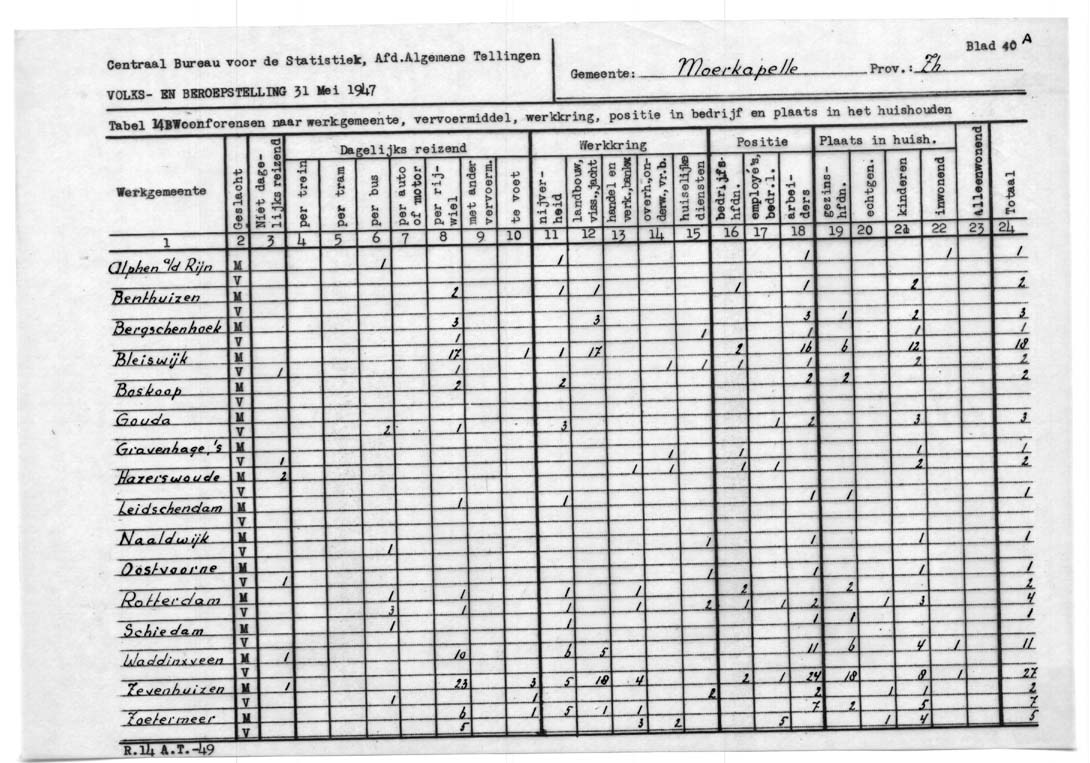 Blad 40 A
Centraal Bureau voor de Statistiek, Afd.Algemene Tellingen
Gemeente: Moerkapelle Prov.: Zh
VOLKS- EN BEROEPSTELLING 31 Mei 1947
Tabel 14B Woonforensen naar werkgemeente, vervoermiddel, werkkring, positie in bedrijf en plaats in het huishouden
Werkgemeente
Geslacht
Niet dage-
lijks reizend
Dagelijks reizend
per trein
per tram
per bus
per auto
of motor
per rij-
wiel
met ander
vervoerm.
te voet
Werkkring
nijver-
heid
landbouw,
viss.,jacht
handel en
verk.,bankw.
overh.,on-
derw.,vr.b.
huiselijke
diensten
Positie
bedrijfs-
hfdn.
employe's,
bedr.l.
arbei-
ders
Plaats in huish.
gezins-
hfdn.
echtgen.
kinderen
inwonend
Alleenwonend
Totaal
1 2 3 4 5 6 7 8 9 10 11 12 13 14 15 16 17 18 19 20 21 22 23 24
Alphen a/d Rijn M 1 1 1 1 1
V
Benthuizen M 2 1 1 1 1 2 2
V
Bergschenhoek M 3 3 3 1 2 3
V 1 1 1 1 1
Bleiswijk M 17 1 1 17 2 16 6 12 18
V 1 1 1 1 1 1 2 2
Boskoop M 2 2 2 2 2
V
Gouda M
V 2 1 3 1 2 3 3
Gravenhage,'s M
V 1 1 1 1 1
Hazerswoude M 2 1 1 1 1 2 2
V
Leidschendam M 1 1 1 1 1
V
Naaldwijk M
V 1 1 1 1 1
Oostvoorne M
V 1 1 1 1 1
Rotterdam M 1 1 1 1 2 2 2
V 3 1 1 1 2 1 1 2 1 3 4
Schiedam M 1 1 1 1 1
V
Waddinxveen M 1 10 6 5 11 6 4 1 11
V
Zevenhuizen M 1 23 3 5 18 4 2 1 24 18 8 1 27
V 1 1 2 2 1 1 2
Zoetermeer M 6 1 5 1 1 7 2 5 7
V 5 3 2 5 1 4 5
R.14 A.T.-49